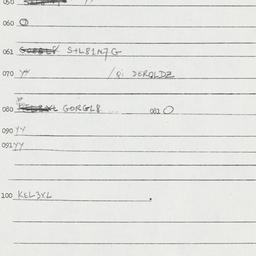 060 O
061 S+L81N7G
070 yy / Qi DEROLDZ
080 GORGL8 081 O
090 yy
091 yy
100 KEL3XL